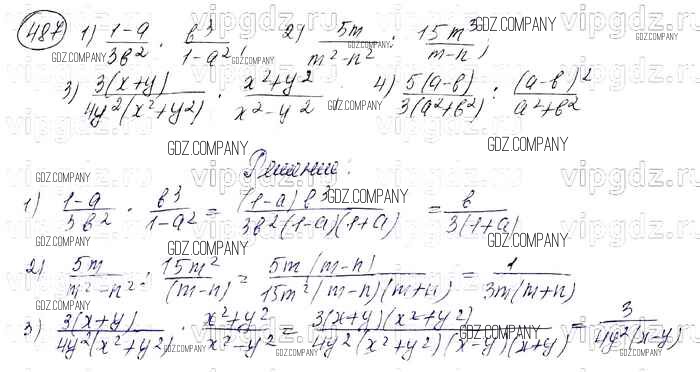 487 1) (1-a)/(3b²) · b³/(1-a²); 2) 5m/(m²-n²) : 15m³/(m-n);
3) 3(x+y)/(4y²(x²+y²)) · (x²+y²)/(x²-y²); 4) 5(a-b)/(3(a²+b²)) : (a-b)²/(a²+b²)
Решение:
1) (1-a)/(3b²) · b³/(1-a²) = (1-a)b³/(3b²(1-a)(1+a)) = b/(3(1+a))
2) 5m/(m²-n²) : 15m²/(m-n) = 5m(m-n)/(15m²(m-n)(m+n)) = 1/(3m(m+n))
3) 3(x+y)/(4y²(x²+y²)) · (x²+y²)/(x²-y²) = 3(x+y)(x²+y²)/(4y²(x²+y²)(x-y)(x+y)) = 3/(4y²(x-y))
GDZ.COMPANY
vipgdz.ru